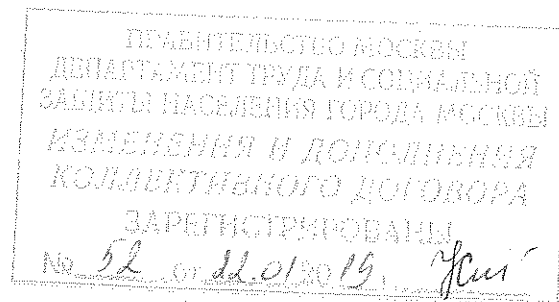 ПРАВИТЕЛЬСТВО МОСКВЫ
ДЕПАРТАМЕНТ ТРУДА И СОЦИАЛЬНОЙ
ЗАЩИТЫ НАСЕЛЕНИЯ ГОРОДА МОСКВЫ
ИЗМЕНЕНИЯ И ДОПОЛНЕНИЯ
КОЛЛЕКТИВНОГО ДОГОВОРА
ЗАРЕГИСТРИРОВАНЫ
№ 52 от 22.01 2019 г.